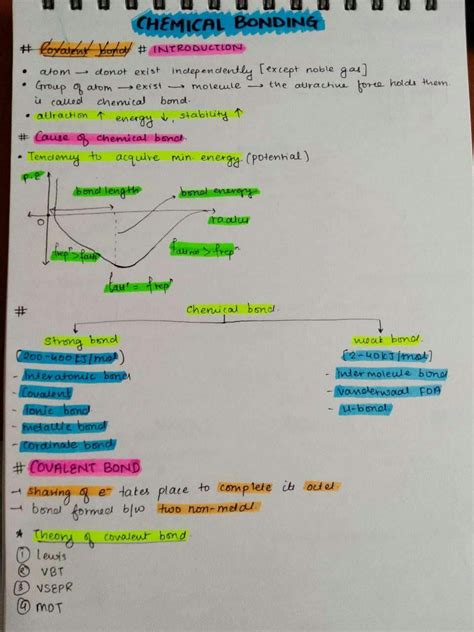 CHEMICAL BONDING
# Covalent bond # INTRODUCTION
• atom → donot exist independently [except noble gas]
• Group of atom → exist → molecule → the attractive force holds them
is called chemical bond.
• attraction ↑ energy ↓, stability ↑
# Cause of chemical bond.
• Tendency to acquire min. energy (potential)
P.E
bond length
bond energy
0
radius
frepⁿ > fattⁿ
fattrac > frepⁿ
fattⁿ = frepⁿ
# Chemical bond.
Strong bond
weak bond.
[200-400 KJ/mol]
[2-40KJ/mol]
- Interatomic bond
- Intermolecule bond
- Covalent
- vanderwaal FOA
- Ionic bond
- H-bond.
- metallic bond
- Cordinate bond
# COVALENT BOND
→ sharing of e⁻ takes place to complete its octet
→ bond formed b/w two non-metal
★ Theory of covalent bond.
① lewis
② VBT
③ VSEPR
④ MOT